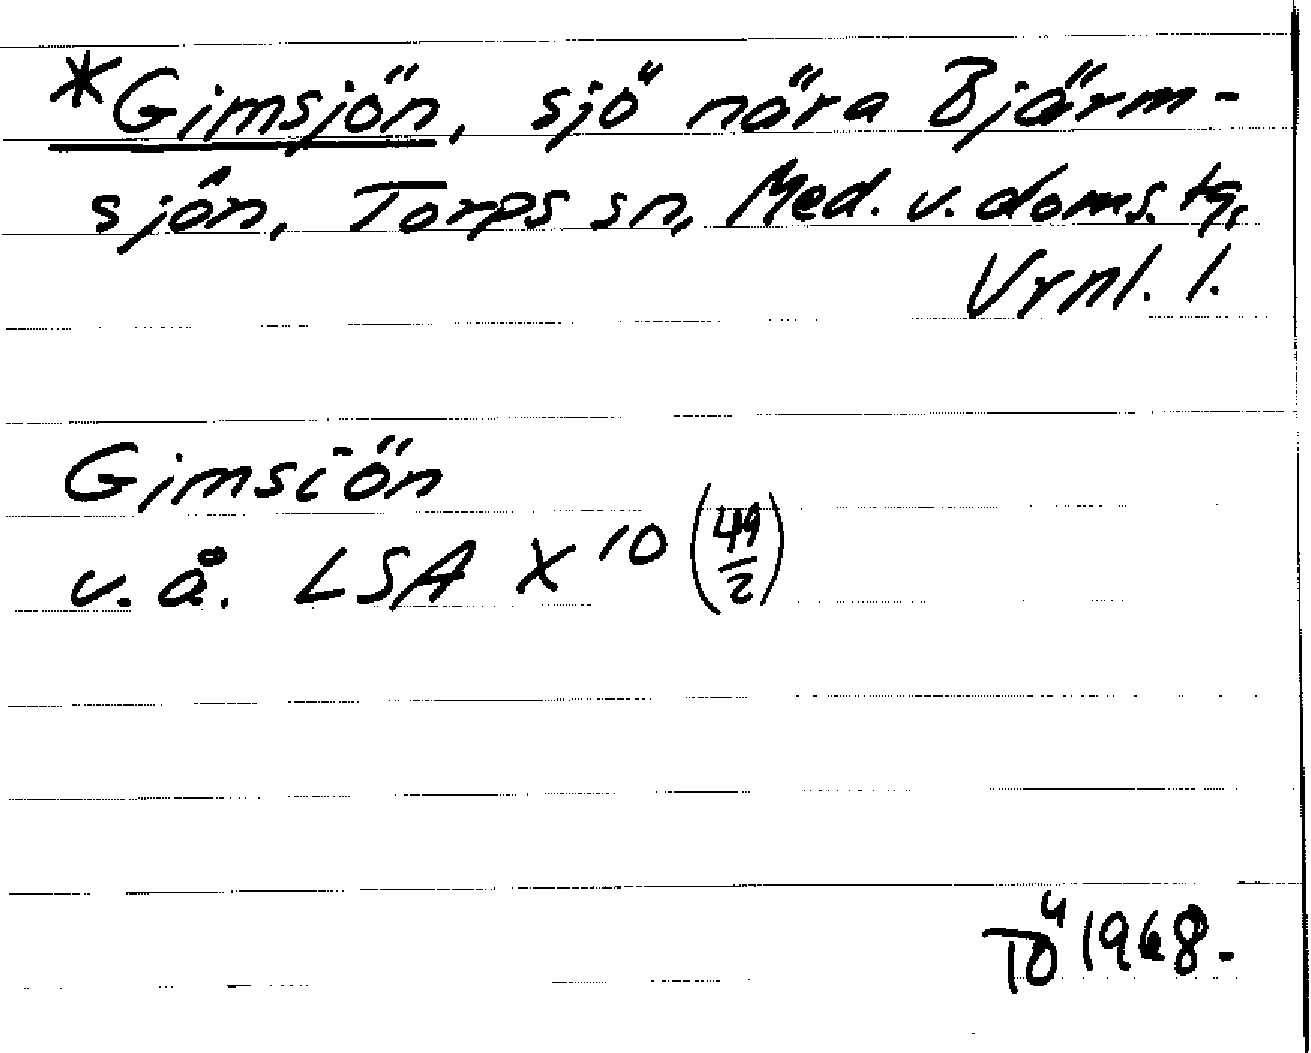 *Gimsjön, sjö nära Bjärm-
sjön, Torps sn, Med. v. doms. tg,
Vrnl. l.
Gimsiön
v. å. LSA X 10 (49/2)
TÖ 1968.